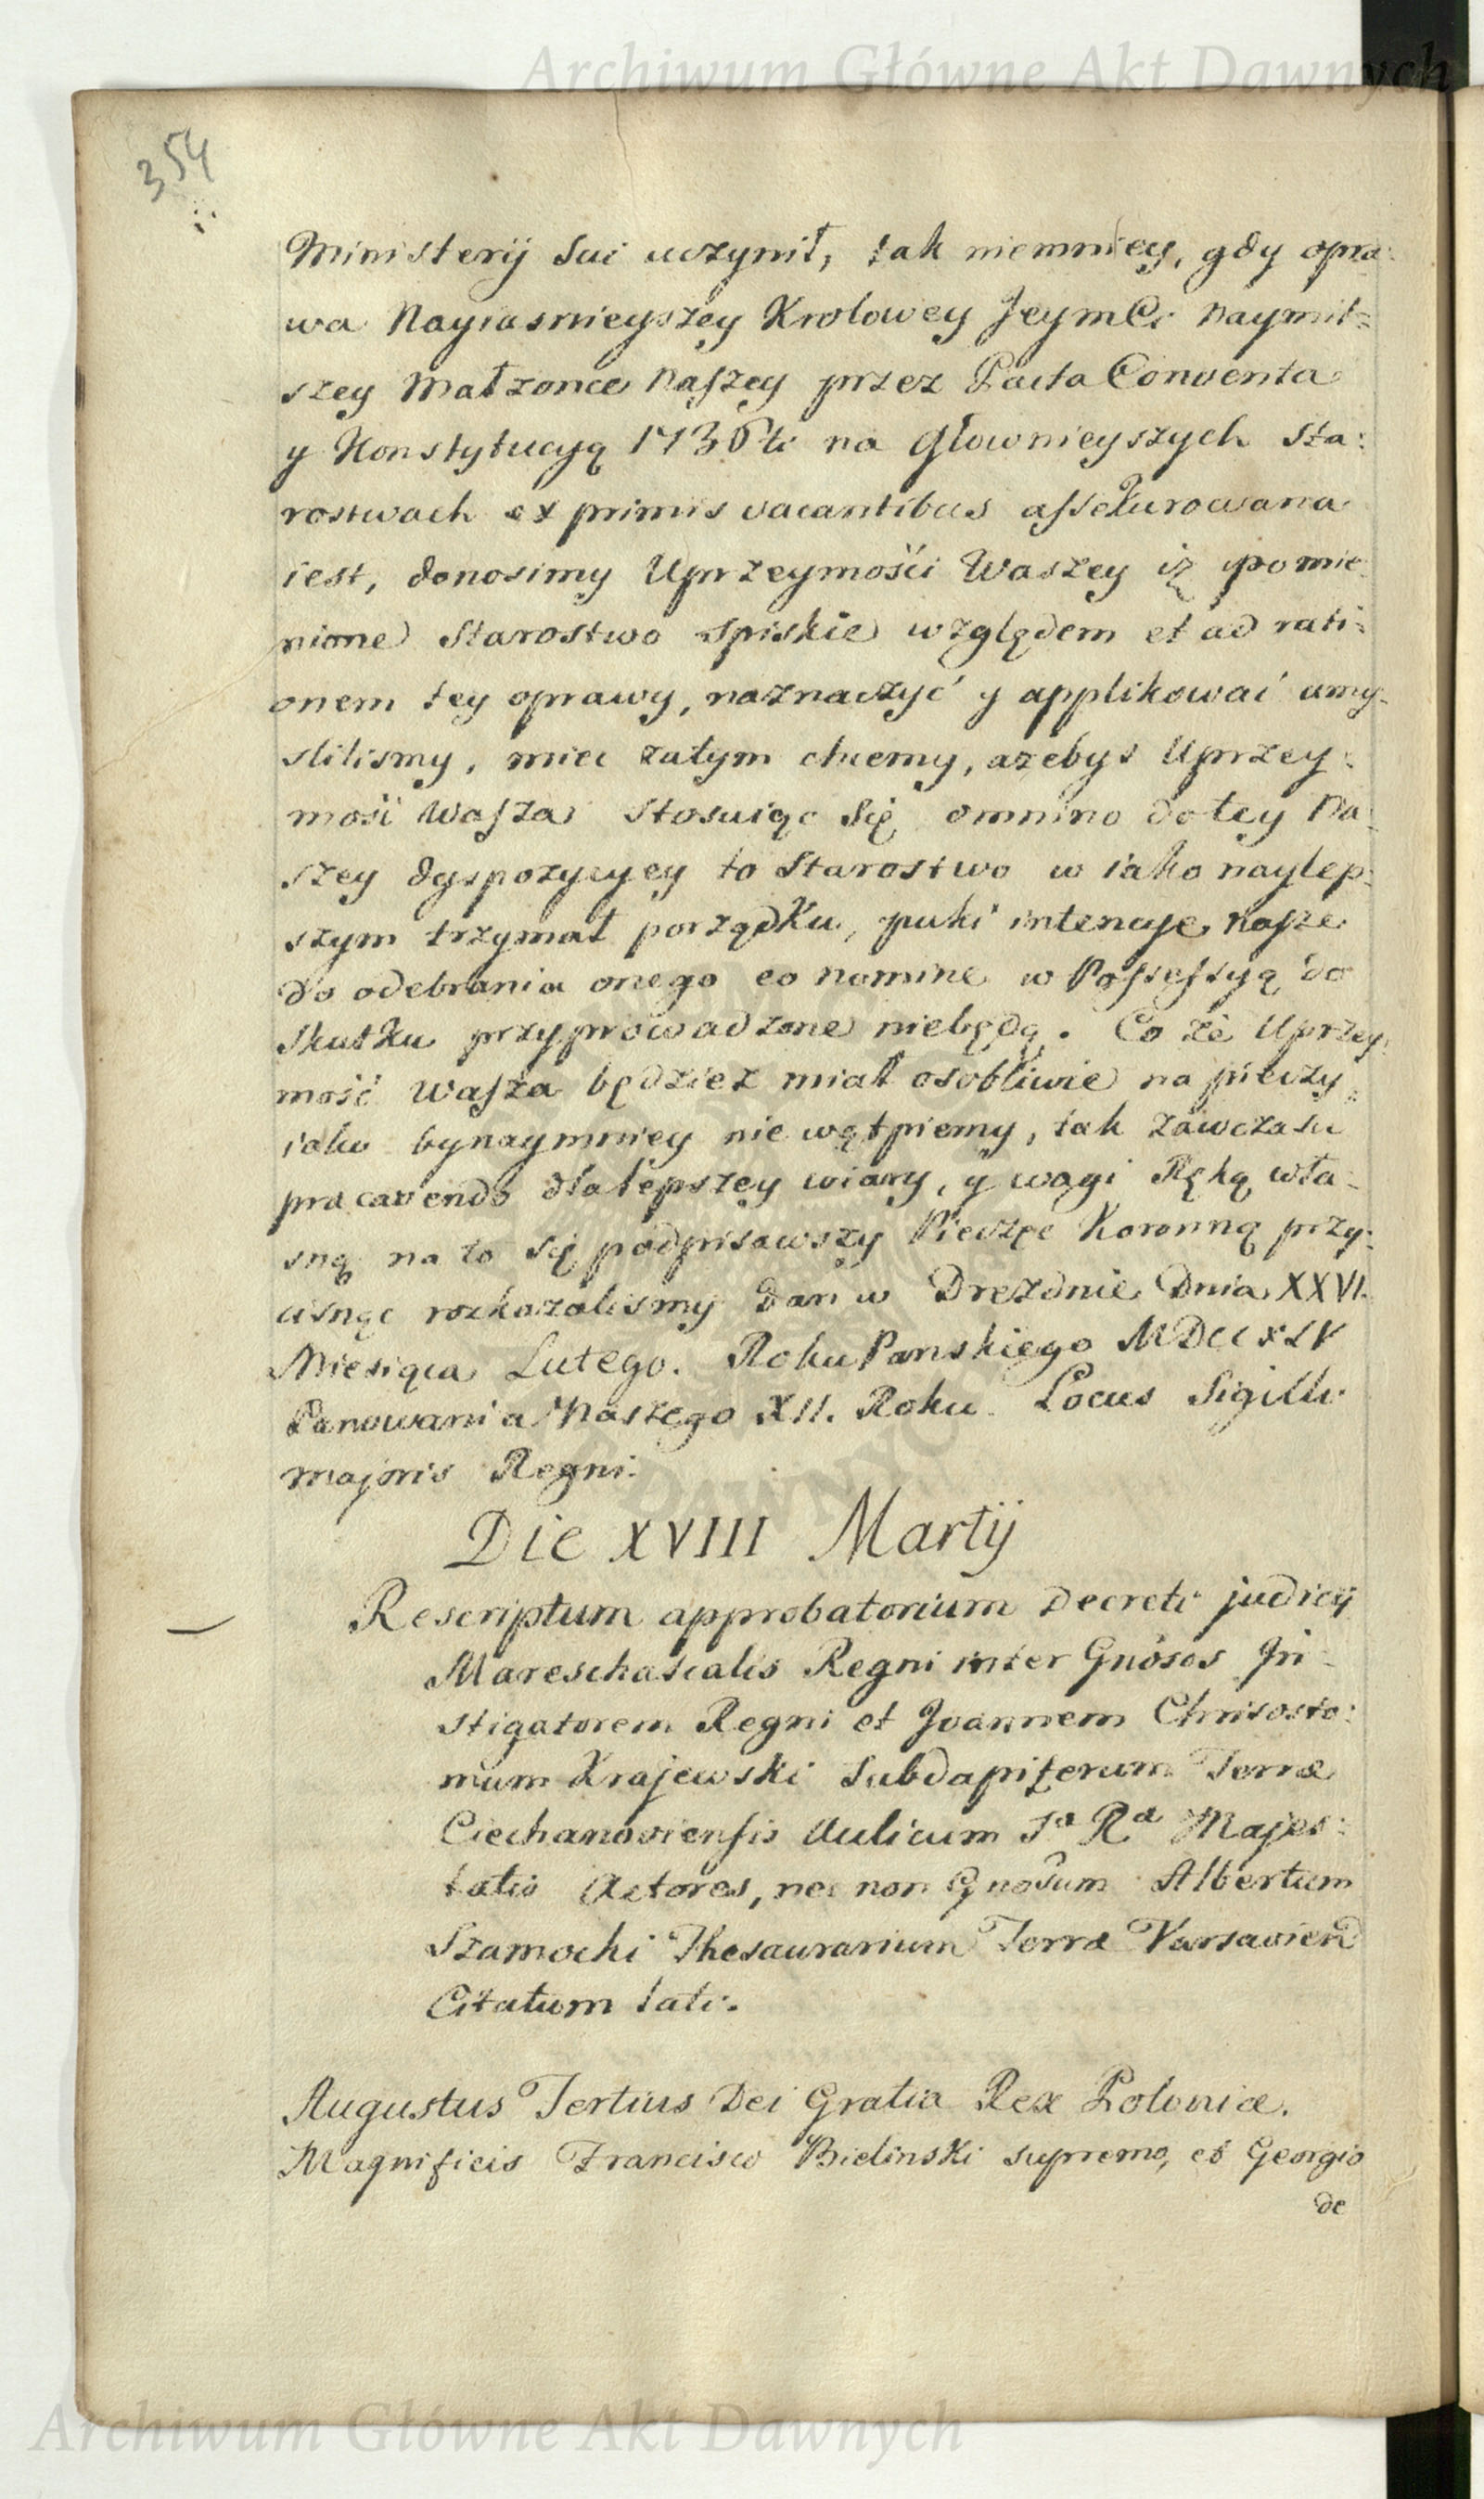 Archiwum Główne Akt Dawnych
354
Ministerij Sui uczynił, tak niemniey, gdy opra:
wa Nayiasnieyszey Krolowey JeymCi Naymil=
szey Małzonce Naszey przez Pacta Conventa
y Konstytucyą 1736ti na Głownieyszych Sta:
rostwach ex primis vacantibus assekurowana
iest, donosimy Uprzeymości Waszey iż pomie:
nione Starostwo Spiskie względem et ad rati:
onem tey oprawy, naznaczyć y applikować umy:
slilismy, miec zatym chcemy, azebys Uprzey:
mość Wasza stosuiąc się omnino do tey Na:
szey dyspozycyey to Starostwo w iako naylep:
szym trzymał porządku, puki intencye nasze
do odebrania onego eo nomine w Possessyą do
skutku przyprowadzone niebędą. Co że Uprzey:
mość Wasza będziez miał osobliwie na pieczy,
iako bynaymniey nie wątpiemy, tak zawczasu
præcavendo dla lepszey wiary, y wagi Ręką wła:
sną na to się podpisawszy Pieczęc Koronną przy:
cisnąc rozkazalismy Dan w Dreznie Dnia XXVI.
Miesiąca Lutego. Roku Panskiego MDCCXLV
Panowania Naszego XII. Roku. Locus Sigilli
majoris Regni.
Die XVIII Martij
Rescriptum approbatorium Decreti judicij
Mareschalcalis Regni inter Gnosos In:
stigatorem Regni et Joannem Chrisosto:
mum Krajewski Subdapiferum Terræ
Ciechanoviensis Aulicum Sæ Ræ Majes:
tatis Actores, nec non Gnosum Albertum
Szamocki Thesaurarium Terræ Varsavien
Citatum lati.
Augustus Tertius Dei Gratia Rex Poloniæ.
Magnificis Francisco Bielinski supremo, et Georgio
de
Archiwum Główne Akt Dawnych